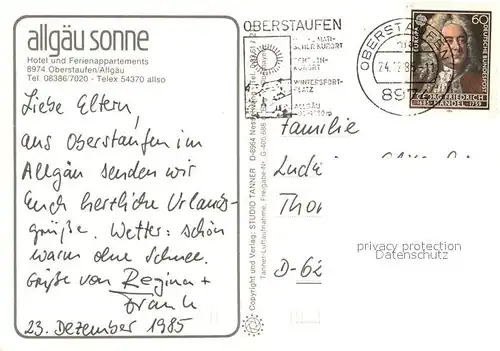 allgäu sonne
Hotel und Ferienappartements
8974 Oberstaufen/Allgäu
Tel. 08386/7020 - Telex 54370 allso
Liebe Eltern,
aus Oberstaufen im
Allgäu senden wir
Euch herzliche Urlaubs-
grüße. Wetter: schön
warm ohne Schnee.
Grüße von Regina +
Frank
23. Dezember 1985
Copyright und Verlag: STUDIO TANNER
Tanner-Luftaufnahme, Freigabe-Nr.
OBERSTAUFEN
KURORT
WINTERSPORT-
PLATZ
ALLGÄU
OBERSTAUFEN
24.12.85-11
897
EUROPA
60
DEUTSCHE BUNDESPOST
GEORG FRIEDRICH
1685 HÄNDEL 1759
Familie
D-62
privacy protection
Datenschutz